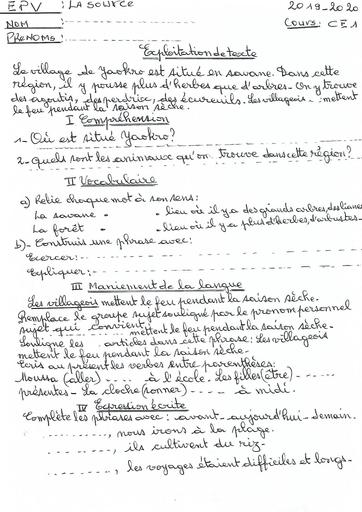 EPV : LA SOURCE 2019-2020
NOM : Cours : CE1
PRENOMS :
Exploitation de texte
Le village de Yaokro est situé en savane. Dans cette
région, il y pousse plus d'herbes que d'arbres. On y trouve
des agoutis, des perdrix, des écureuils. Les villageois mettent
le feu pendant la saison sèche.
I Compréhension
1- Où est situé Yaokro?
2- Quels sont les animaux qu'on trouve dans cette région?
II Vocabulaire
a) Relie chaque mot à son sens:
La savane - - lieu où il y a des grands arbres, des lianes
La forêt - - lieu où il y a plus d'herbes, d'arbustes-
b)- Construis une phrase avec:
Exercer:-
Expliquer:-
III Maniement de la langue
Les villageois mettent le feu pendant la saison sèche.
Remplace le groupe sujet souligné par le pronom personnel
sujet qui convient. ........ mettent le feu pendant la saison sèche-
Souligne les articles dans cette phrase: Les villageois
mettent le feu pendant la saison sèche-
Ecris au présent les verbes entre parenthèses:
Moussa (aller) ---- à l'école. Les filles (être) -----
présentes- La cloche (sonner) ----- à midi.
IV Expression écrite
Complète les phrases avec : avant - aujourd'hui - demain.
............, nous irons à la plage.
............, ils cultivent du riz-
............, les voyages étaient difficiles et longs-